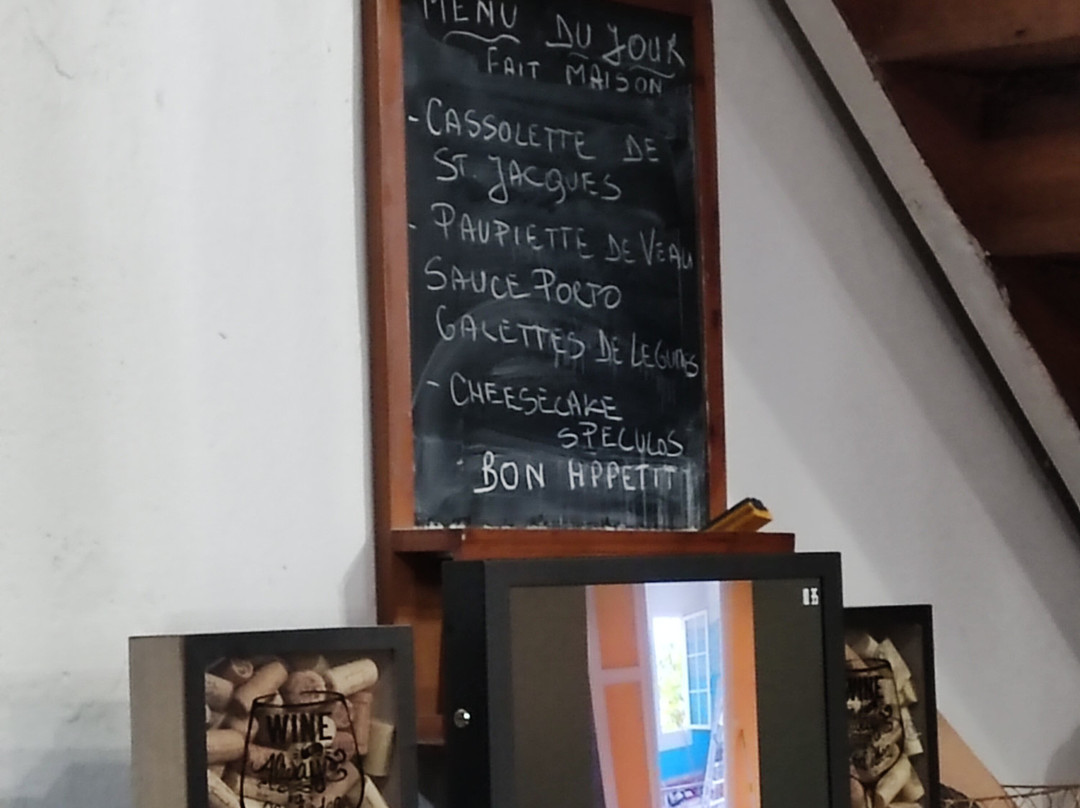 MENU DU JOUR
FAIT MAISON
- CASSOLETTE DE
ST. JACQUES
- PAUPIETTE DE VEAU
SAUCE PORTO
GALETTES DE LEGUMES
- CHEESECAKE
SPECULOS
BON APPETIT
WINE
Always
WINE